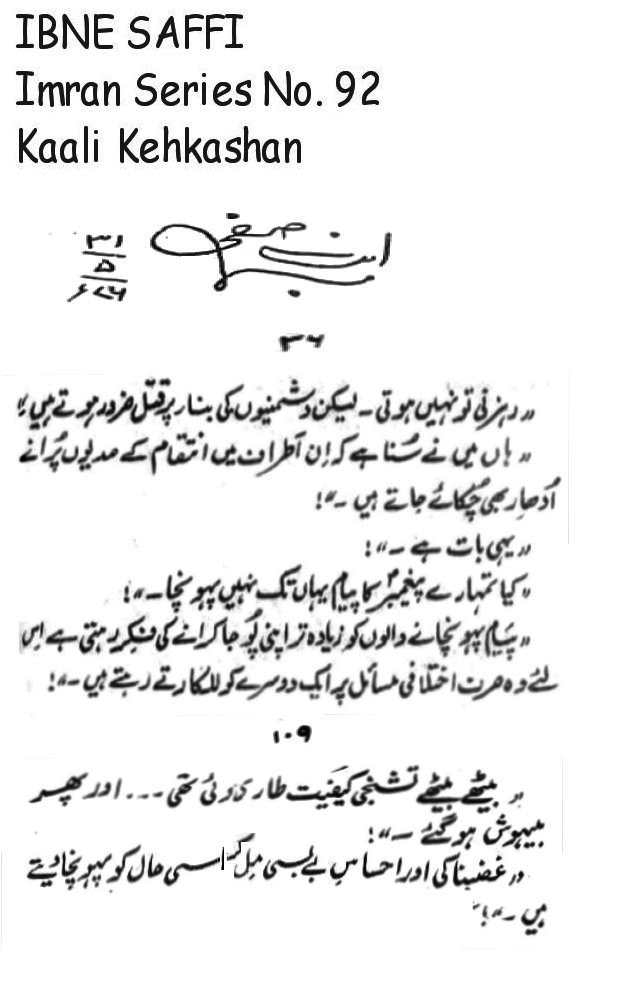 IBNE SAFFI
Imran Series No. 92
Kaali Kehkashan
ابن صفی
۳۱
۵
۷۶ء
۳۶
"رہزنی تو نہیں ہوتی ۔ لیکن دشمنیوں کی بنار پر قتل ضرور ہوتے ہیں"
"ہاں میں نے سُنا ہے کہ اِن اَطراف میں انتقام کے صدیوں پُرانے
اُدھار بھی چُکائے جاتے ہیں ۔"!
"یہی بات ہے ۔"!
"کیا تمہارے پیغمبرؐ کا پیام یہاں تک نہیں پہونچا ۔"!
"پیام پہونچانے والوں کو زیادہ تر اپنی پُوجا کرانے کی فکر رہتی ہے اِس
لئے وہ صرف اختلافی مسائل پر ایک دوسرے کو للکارتے رہتے ہیں ۔"!
۱۰۹
"بیٹھے بیٹھے تشنجی کیفیت طاری ہوئی تھی ۔۔۔ اور پھر
بیہوش ہو گئے ۔"!
"غضبناکی اور احساسِ بے بسی مِل کر اسی حال کو پہونچا دیتے
ہیں ۔"!